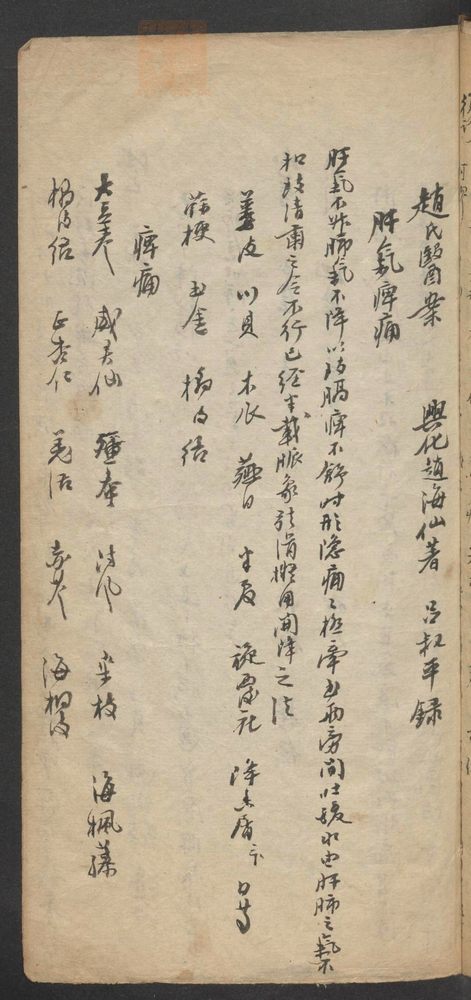 趙氏醫案 興化趙海仙著 呂叔平録
肝氣痺痛
肝氣不升肺氣不降以致膈痺不舒時形隱痛痛極牽及兩旁間吐痰水由肝肺之氣不
和致清肅之令不行已經半載脈象弦滑擬用開降之法
蔞皮 川貝 木瓜 薤白 半夏 旋覆花 降香屑
蘇梗 玉金 橘白絡
痺痛
大玄參 威靈仙 殭蠶 防風 桑枝 海楓藤
橘白絡 正杏仁 羌活 赤芍 海桐皮